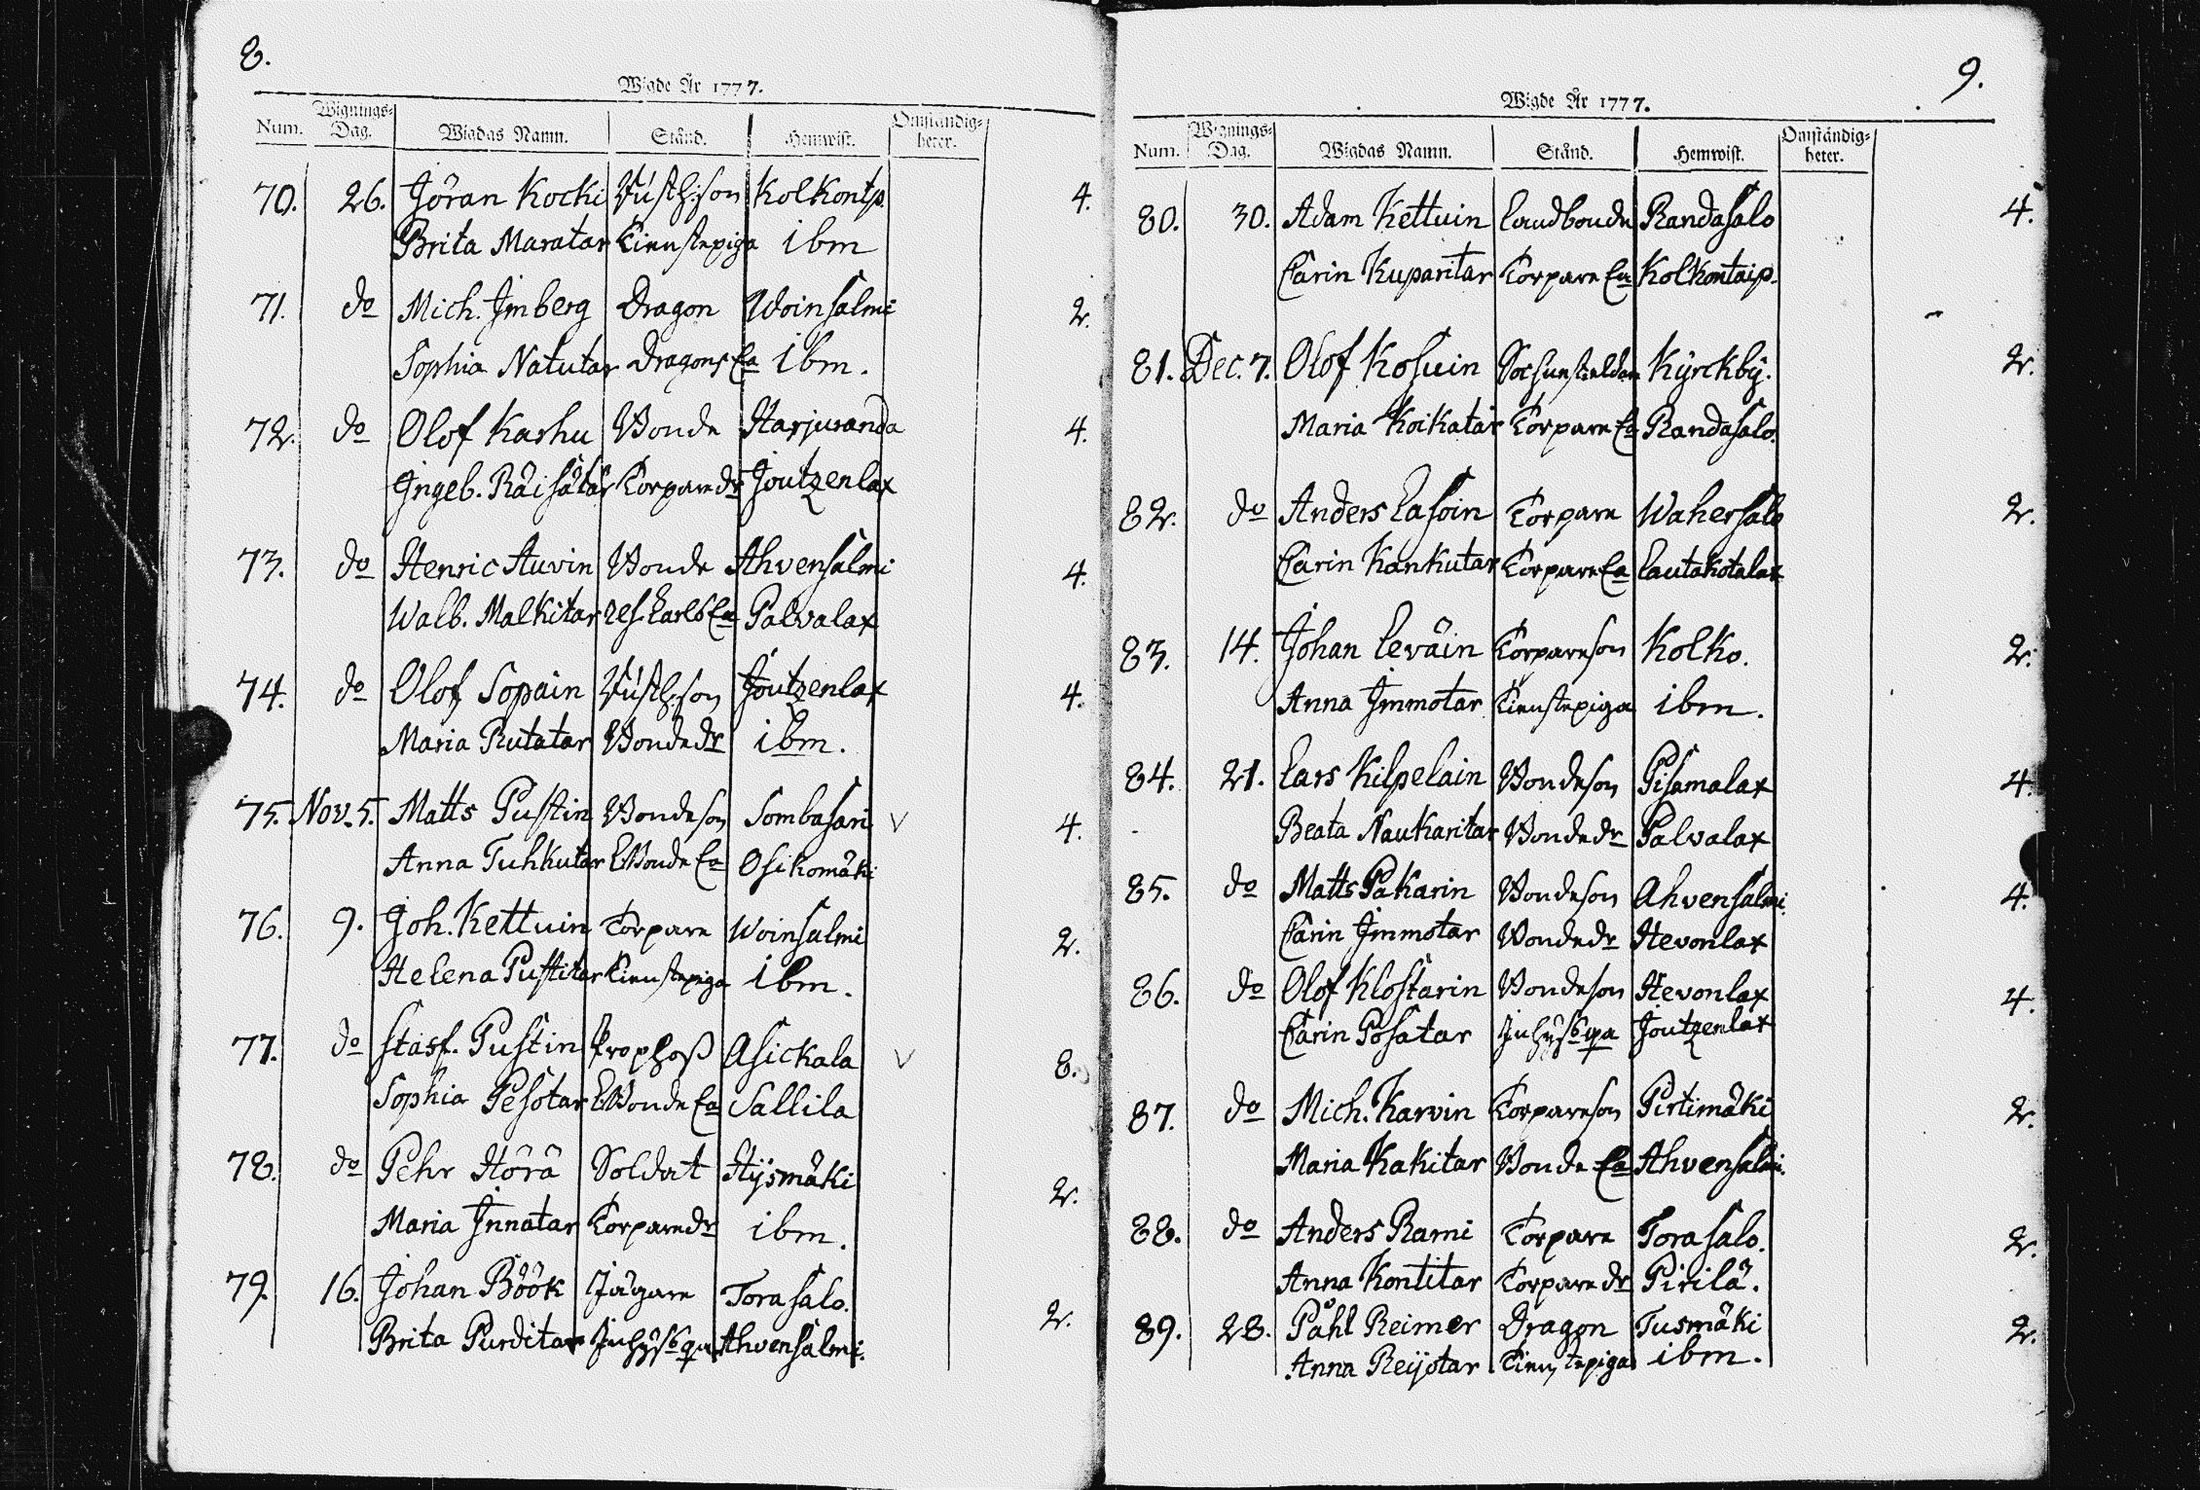 8.
Wigde År 1777.
Num. Wignings-Dag. Wigdas Namn. Stånd. Hemwist. Omständig-heter.
70. 26. Jöran Kocki Kolkontp. 4.
Brita Maratar Tienstepiga ibm
71. do Mich. Imberg Dragon Woinsalmi 2.
Sophia Natutar Dragons Ea ibm.
72. do Olof Karhu Bonde Harjuranda 4.
Ingeb. Räisätär Torpare dr Joutzenlax
73. do Henric Auvin Bonde Ahvensalmi 4.
Walb. Malkitar Palvalax
74. do Olof Sopain Joutzenlax 4.
Maria Rutatar Bonde dr ibm.
75. Nov. 5. Matts Pustin Bondeson Sombasari V 4.
Anna Tuhkutar Bonde Ea Osikomäki
76. 9. Joh. Kettuin Torpare Woinsalmi 2.
Helena Pustitar Tienstepiga ibm.
77. do Staff. Pustin Prophoß Asickala V 8.
Sophia Pesotar Bonde Ea Sallila
78. do Pehr Hörä Soldat Hysmäki 2.
Maria Innatar Torpare dr ibm.
79 16. Johan Böök Jägare Torasalo. 2.
Brita Purditar Inhyses qa Ahvensalmi.
9.
Wigde År 1777.
Num. Wignings-Dag. Wigdas Namn. Stånd. Hemwist. Omständig-heter.
80. 30. Adam Kettuin Landbonde Randasalo 4.
Carin Kuparitar Torpare Ea Kolkontaip.
81. Dec. 7. Olof Kosuin Kyrckby. 2.
Maria Koikatar Torpare Ea Randasalo.
82. do Anders Lasoin Torpare Wahersalo 2.
Carin Kankutar Torpare Ea Lautakotalax
83. 14. Johan Leväin Torpareson Kolko. 2.
Anna Immotar Tienstepiga ibm.
84. 21. Lars Kilpelain Bondeson Pisamalax 4.
Beata Naukaritar Bonde dr Palvalax
85. do Matts Pakarin Bondeson Ahvensalmi. 4.
Carin Immotar Bonde dr Hevonlax
86. do Olof Klostarin Bondeson Hevonlax 4.
Carin Posatar Inhyses qa Joutzenlax
87. do Mich. Karvin Torpareson Pirtimäki 2.
Maria Kakitar Bonde Ea Ahvensalmi.
88. do Anders Rami Torpare Torasalo. 2.
Anna Kontitar Torpare dr Pirilä.
89. 28. Påhl Reimer Dragon Tusmäki 2.
Anna Reijotar Tienstepiga ibm.